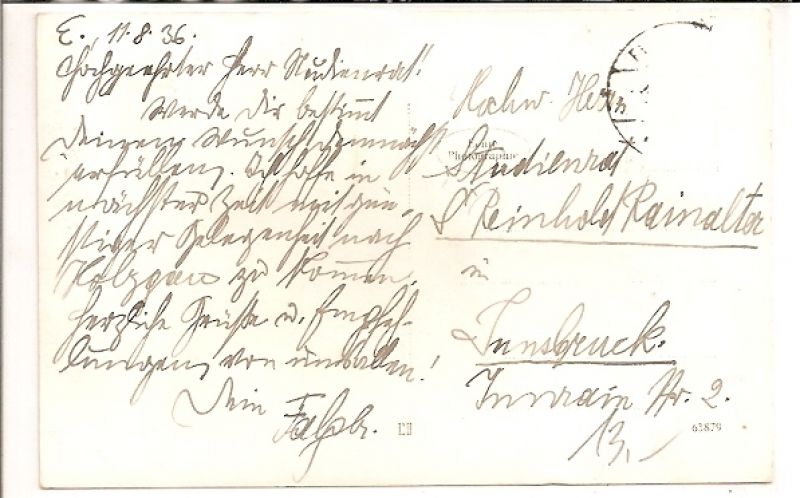 E., 11.8.36.
Hochgeehrter Herr Studienrat!
Werde Dir bestimmt
Deinen Wunsch demnächst
erfüllen. Ich hoffe in
nächster Zeit mit gün-
stiger Gelegenheit nach
Holzgau zu kommen.
Herzliche Grüße u. Empfeh-
lungen von uns allen!
Dein
Hochw. Herrn
Studienrat
Reinhold Rainalter
in
Innsbruck.
Innrain Nr. 2.
13,-
Echte
Photographie
63879